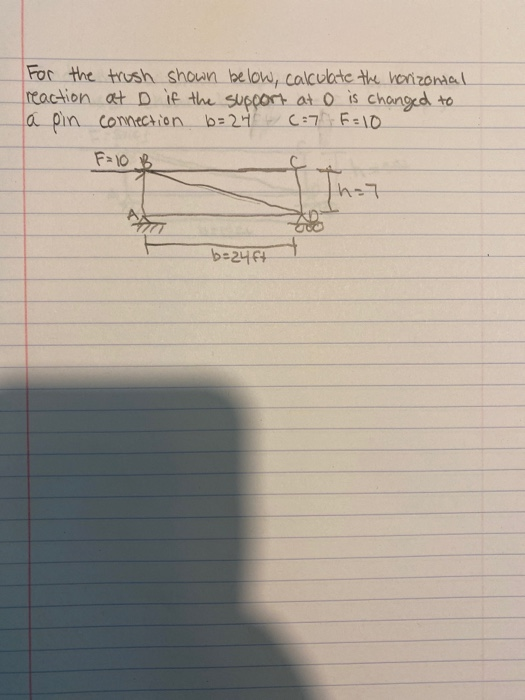 For the trush shown below, calculate the horizontal
reaction at D if the support at D is changed to
a pin connection b=24 C=7 F=10
F=10 B C
h=7
A D
b=24ft